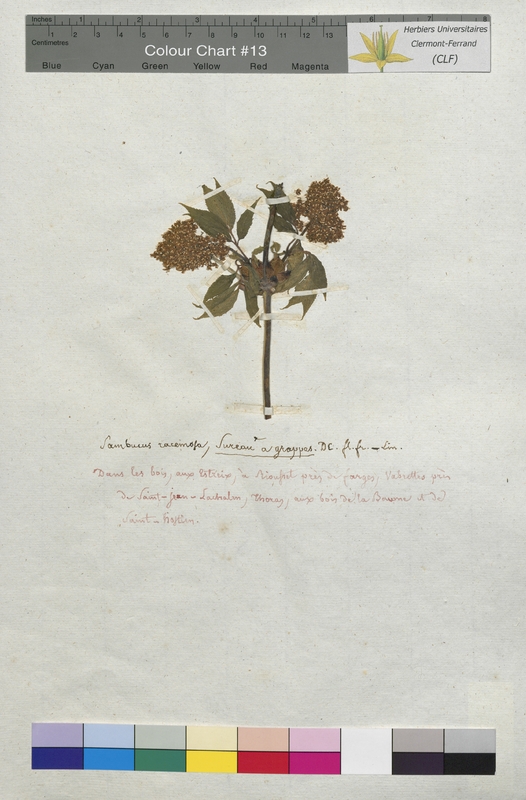 Inches 1 2 3 4 5 6 7 8
Centimetres 1 2 3 4 5 6 7 8 9 10 11 12 13
Colour Chart #13
Blue Cyan Green Yellow Red Magenta
Herbiers Universitaires
Clermont-Ferrand
(CLF)
Sambucus racemosa, Sureau à grappes. DC. fl. fr. - Lin.
Dans les bois, aux Estreix, à Rioufret près de farges, Vabrettes près
de Saint-Jean-Lachalm, Thoras, aux bois de la et de
Saint-